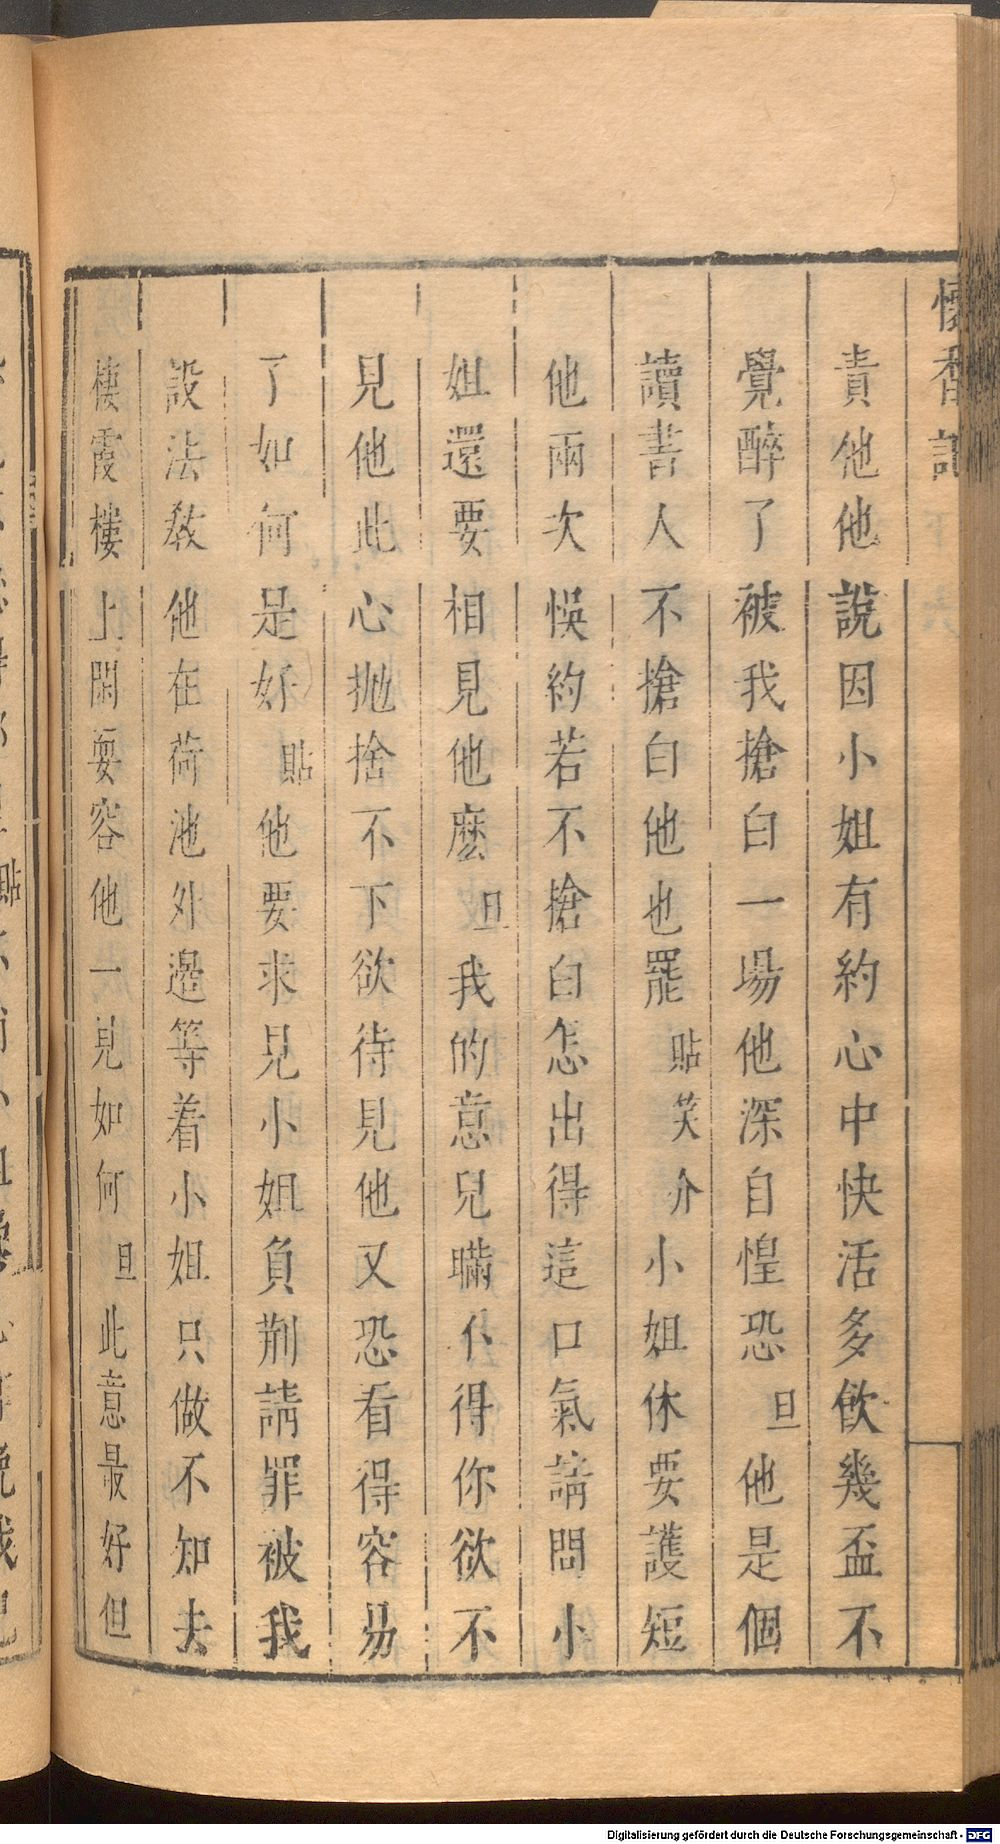 懷香記
責他他說因小姐有約心中快活多飲幾盃不
覺醉了被我搶白一場他深自惶恐旦他是個
讀書人不搶白他也罷貼笑介小姐休要護短
他兩次悞約若不搶白怎出得這口氣請問小
姐還要相見他麽旦我的意兒瞞不得你欲不
見他此心拋捨不下欲待見他又恐看得容易
了如何是好貼他要求見小姐負荊請罪被我
設法教他在荷池外邊等着小姐只做不知去
棲霞樓上閑耍容他一見如何旦此意最好但
Digitalisierung gefördert durch die Deutsche Forschungsgemeinschaft - DFG